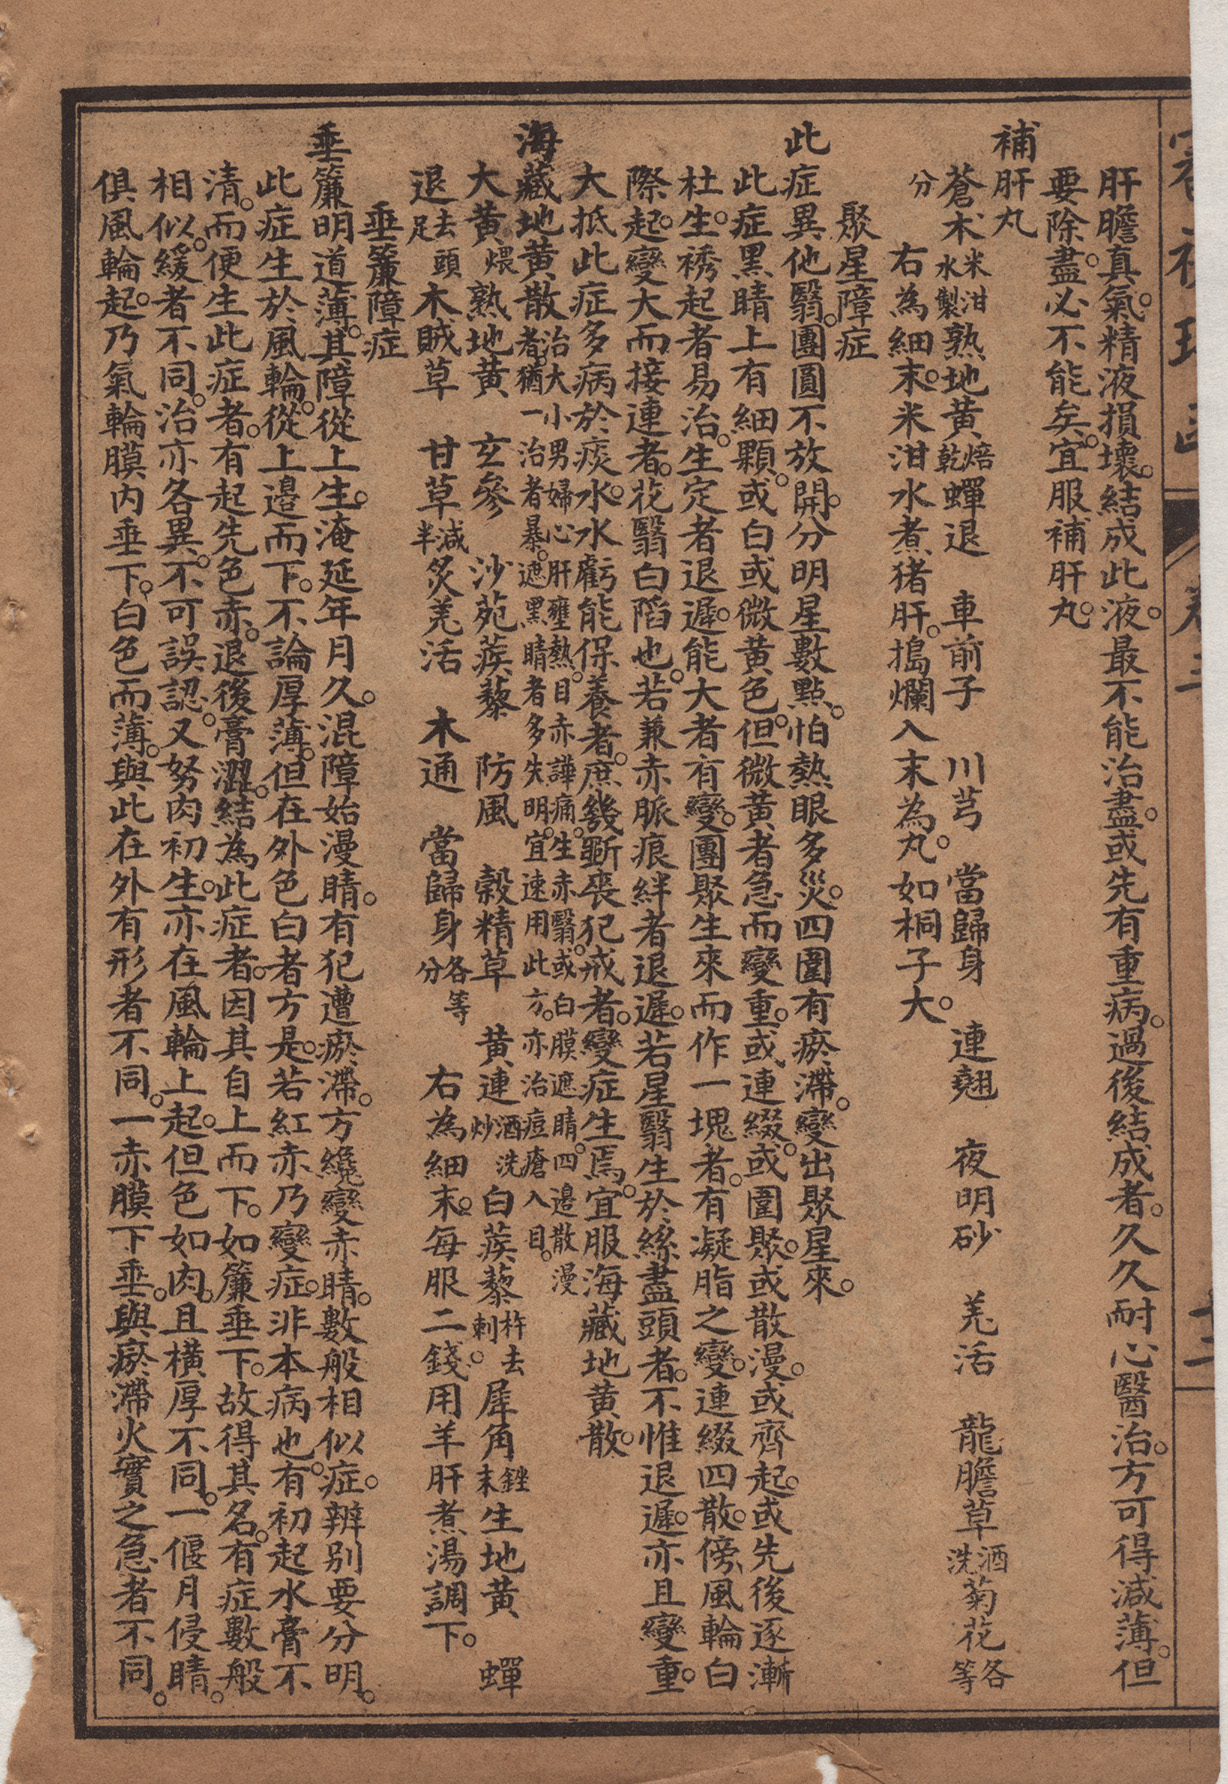 肝膽真氣。精液損壞。結成此液。最不能治盡。或先有重病。過後結成者。久久耐心醫治。方可得減薄。但
要除。盡必不能矣。宜服補肝丸。
補肝丸
蒼朮米泔水製熟地黃焙乾蟬退　車前子　川芎　當歸身　連翹　夜明砂　羌活　龍膽草酒洗菊花各等
分
右為細末。米泔水煮猪肝。搗爛入末為丸。如桐子大。
聚星障症
此症異他翳。團圓不放開。分明星數點。怕熱眼多災。四圍有瘀滯。變出聚星來。
此症黑睛上有細顆。或白或微黃色。但微黃者急而變重。或連綴。或圍聚。或散漫。或齊起。或先後逐漸
杜生。𧝞起者易治。生定者退遲。能大者有變。團聚生來而作一塊者。有凝脂之變。連綴四散。傍風輪白
際起。變大而接連者。花翳白陷也。若兼赤脈痕絆者退遲。若星翳生於絲盡頭者。不惟退遲。亦且變重。
大抵此症多病於痰水。水虧能保養者。庶幾斲喪犯戒者。變症生焉。宜服海藏地黃散。
海藏地黃散治大小男婦心肝壅熱。目赤譁痛。生赤翳。或白膜遮睛。四邊散漫者猶一治者暴。遮黑睛者多失明。宜速用此方。亦治痘瘡入目。
大黃煨熟地黃　玄參　沙苑蒺藜　防風　穀精草　黃連酒洗炒白蒺藜杵去刺。犀角銼末生地黃　蟬
退去頭足木賊草　甘草減半炙羌活　木通　當歸身各等分　右為細末。每服二錢。用羊肝煮湯調下。
垂簾障症
垂簾明道薄。其障從上生。淹延年月久。混障始漫睛。有犯遭瘀滯。方纔變赤睛。數般相似症。辨別要分明。
此症生於風輪。從上邊而下。不論厚薄。但在外色白者方是。若紅赤乃變症。非本病也。有初起水膏不
清。而便生此症者。有起先色赤。退後膏澀。結為此症者。因其自上而下。如簾垂下。故得其名。有症數般
相似。緩者不同。治亦各異。不可誤認。又努肉初生。亦在風輪上起。但色如肉。且橫厚不同。一偃月侵睛。
俱風輪起。乃氣輪膜內垂下。白色而薄。與此在外有形者不同。一赤膜下垂。與瘀滯火實之急者不同。